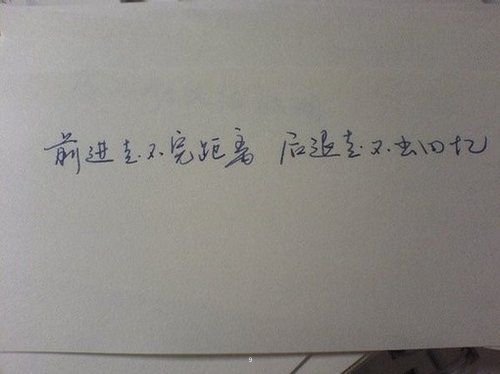 前进走不完距离 后退走不出回忆
9